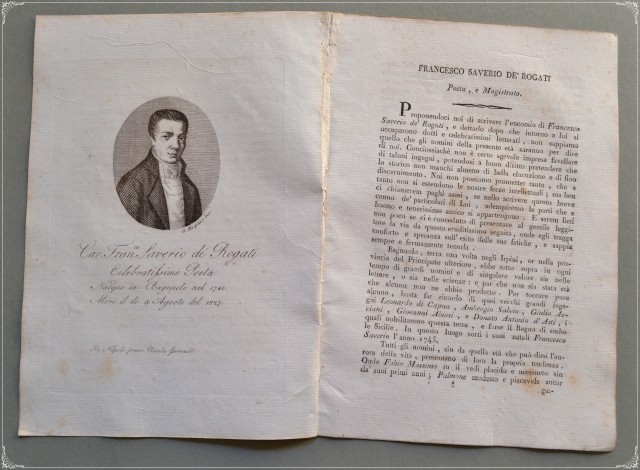 Cav. Fran.co Saverio de' Rogati
Celebratissimo Poeta
Nacque in Bagnuolo nel
Morì il dì 9 Agosto del
In Napoli presso Nicola Gervasi
FRANCESCO SAVERIO DE' ROGATI
Poeta, e Magistrato.
Proponendoci noi di scrivere l'encomio di Francesco
Saverio de' Rogati, e dettarlo dopo che intorno a lui si
occuparono dotti e celebratissimi letterati, non sappiamo
quello che gli uomini della presente età saranno per dire
di noi. Conciosiachè non è certo agevole impresa favellare
di taluni ingegni, potendosi a buon diritto pretendere che
lo storico non manchi almeno di bella elocuzione e di fino
discernimento. Noi non possiamo promettere tanto, che a
tanto non si estendono le nostre forze intellettuali; ma ben
ci chiameremo paghi assai, se nello scrivere questo breve
cenno de' particolari di Lui, adempiremo le parti che a
buono e tenerissimo amico si appartengono. E sarem lieti
non poco se ci è conceduto di presentare al gentile leggi-
tore la via da questo eruditissimo segnata, onde egli tragga
conforto e speranza sull' esito delle sue fatiche, e sappia
sempre e fermamente tenerla.
Bagnuolo, terra una volta negli Irpini, or nella pro-
vincia del Principato ulteriore, ebbe sotto sopra in ogni
tempo di grandi uomini e di singolar valore sia nelle
lettere, o sia nelle scienze: e par che non sia stata età
che alcuno non ne abbia prodotto. Per toccare pure
alcuno, basta far ricordo di quai vecchi grandi inge-
gni Leonardo di Capua, Ambrogio Salvio, Giulio Ac-
ciani, Giovanni Abioni, e Donato Antonio d'Asti, i
quali nobilitarono questa terra, e forse il Regno di ambo
le Sicilie. In questo luogo sortì i suoi natali Francesco
Saverio l'anno 1745.
Tutti gli uomini, sin da quella età che può dirsi l'au-
rora della vita, presentano di loro la propria tendenza.
Onde Fabio Massimo tu il vedi placido e mansueto sin
da' suoi primi anni; Palmone modesto e piacevole ancor
2
gar-